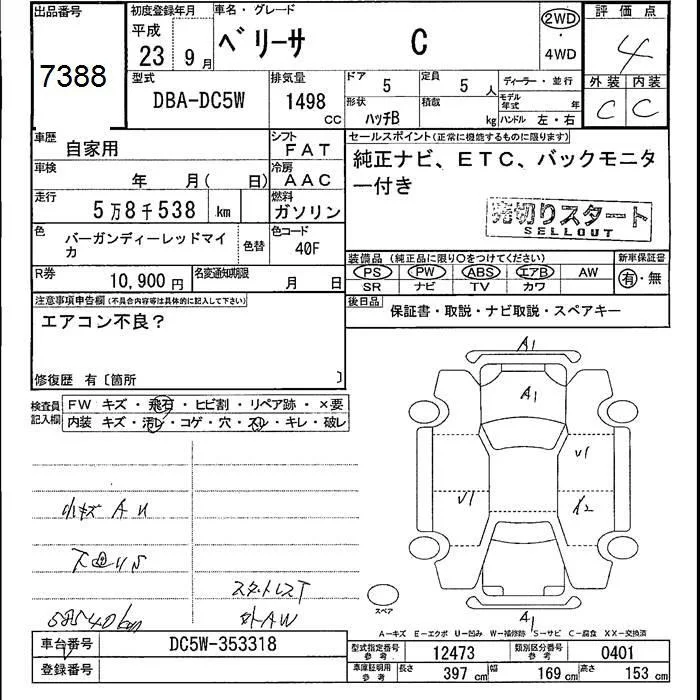 出品番号
7388
初度登録年月
平成
23 9月
車名・グレード
ベリーサ C
2WD
・
4WD
評価点
4
外装 内装
C C
型式
DBA-DC5W
排気量
1498 CC
ドア 5
定員 5 人
形状 ハッチB
積載 kg
ディーラー・並行
モデル年式 年
ハンドル 左・右
車歴 自家用
シフト FAT
車検 年 月( 日)
冷房 AAC
走行 5万8千538 km
燃料 ガソリン
色 バーガンディーレッドマイカ
色替
色コード 40F
R券 10,900円
名変通知期限 月 日
セールスポイント(正常に機能するものに限ります)
純正ナビ、ETC、バックモニタ
ー付き
売切りスタート
SELLOUT
装備品 (純正品に限り○をつけてください)
PS PW ABS エアB AW
SR ナビ TV カワ
新車保証書
有・無
後日品 保証書・取説・ナビ取説・スペアキー
注意事項申告欄(不具合内容等は具体的に記入して下さい)
エアコン不良?
修復歴 有〔箇所 〕
検査員記入欄
FW キズ・飛石・ヒビ割・リペア跡・×要
内装 キズ・汚レ・コゲ・穴・スレ・キレ・破レ
小キズ A U
58540km
外AW
A1
A1
U1
U1
X2
A1
スペア
A―キズ E―エクボ U―凹み W―補修跡 S―サビ C―腐食 XX―交換済
車台番号 DC5W-353318
登録番号
型式指定番号 参考 12473
類別区分番号 参考 0401
車庫証明用 参考 長さ 397 cm 幅 169 cm 高さ 153 cm